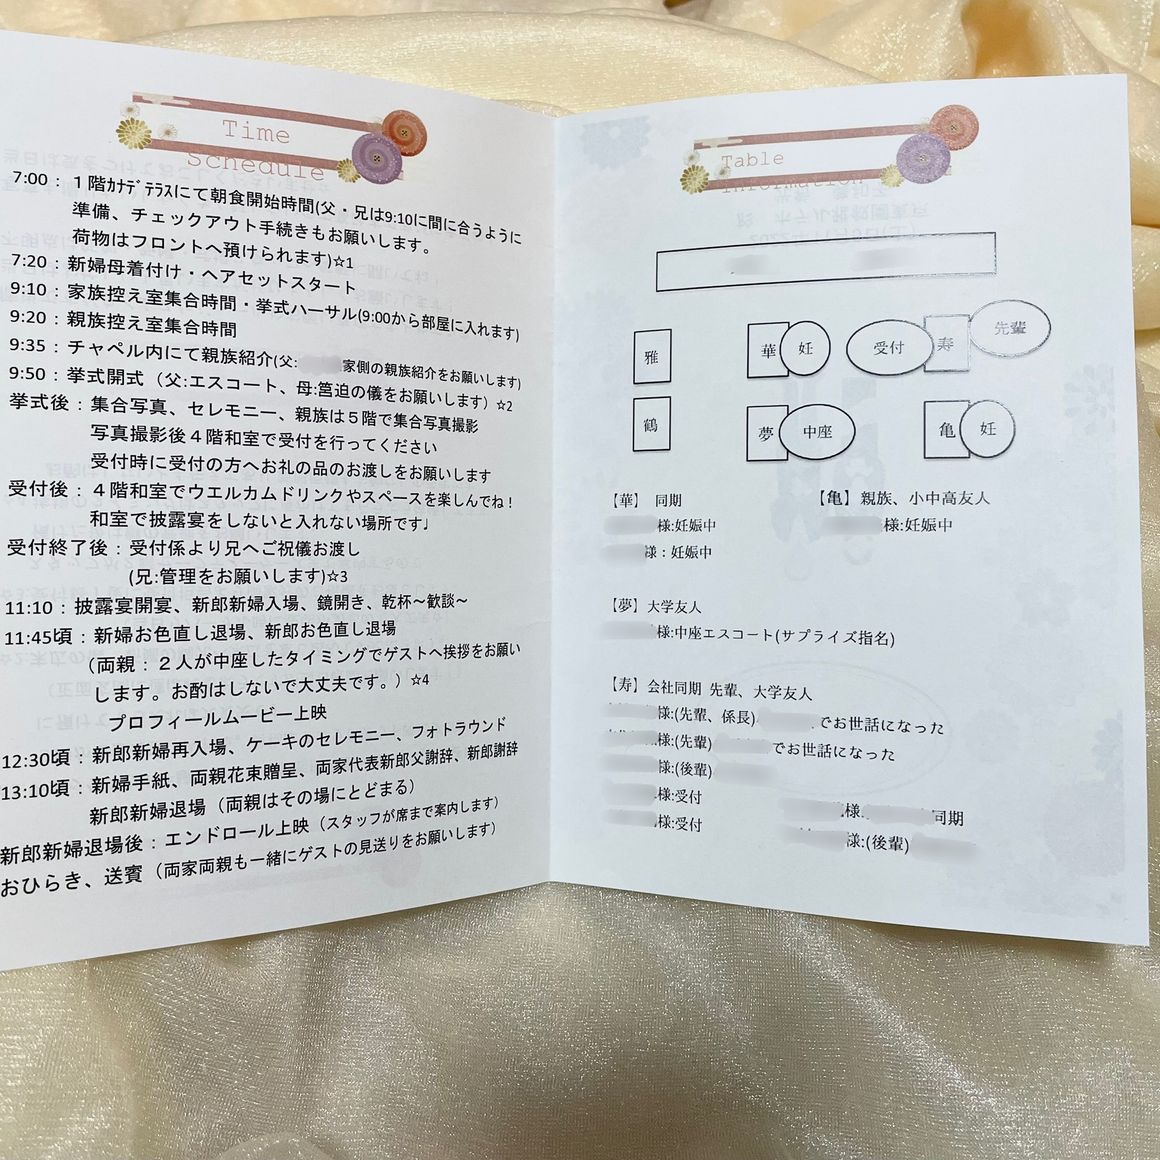 Time
Schedule
7:00：１階ｶﾅﾃﾞﾃﾗｽにて朝食開始時間(父・兄は9:10に間に合うように
準備、チェックアウト手続きもお願いします。
荷物はフロントへ預けられます)☆1
7:20：新婦母着付け・ヘアセットスタート
9:10：家族控え室集合時間・挙式ハーサル(9:00から部屋に入れます)
9:20：親族控え室集合時間
9:35：チャペル内にて親族紹介(父: 家側の親族紹介をお願いします)
9:50：挙式開式（父:エスコート、母:筥迫の儀をお願いします）☆2
挙式後：集合写真、セレモニー、親族は５階で集合写真撮影
写真撮影後４階和室で受付を行ってください
受付時に受付の方へお礼の品のお渡しをお願いします
受付後：４階和室でウエルカムドリンクやスペースを楽しんでね！
和室で披露宴をしないと入れない場所です♩
受付終了後：受付係より兄へご祝儀お渡し
(兄:管理をお願いします)☆3
11:10：披露宴開宴、新郎新婦入場、鏡開き、乾杯～歓談～
11:45頃：新婦お色直し退場、新郎お色直し退場
（両親：２人が中座したタイミングでゲストへ挨拶をお願い
します。お酌はしないで大丈夫です。）☆4
プロフィールムービー上映
12:30頃：新郎新婦再入場、ケーキのセレモニー、フォトラウンド
13:10頃：新婦手紙、両親花束贈呈、両家代表新郎父謝辞、新郎謝辞
新郎新婦退場（両親はその場にとどまる）
新郎新婦退場後：エンドロール上映（スタッフが席まで案内します）
おひらき、送賓（両家両親も一緒にゲストの見送りをお願いします）
Table
Information
雅 華 妊 受付 寿 先輩
鶴 夢 中座 亀 妊
【華】 同期
様:妊娠中
様：妊娠中
【亀】親族、小中高友人
様:妊娠中
【夢】大学友人
様:中座エスコート(サプライズ指名)
【寿】会社同期 先輩、大学友人
様:(先輩、係長) でお世話になった
様:(先輩) でお世話になった
様:(後輩)
様:受付
様:受付
様, 同期
様:(後輩)